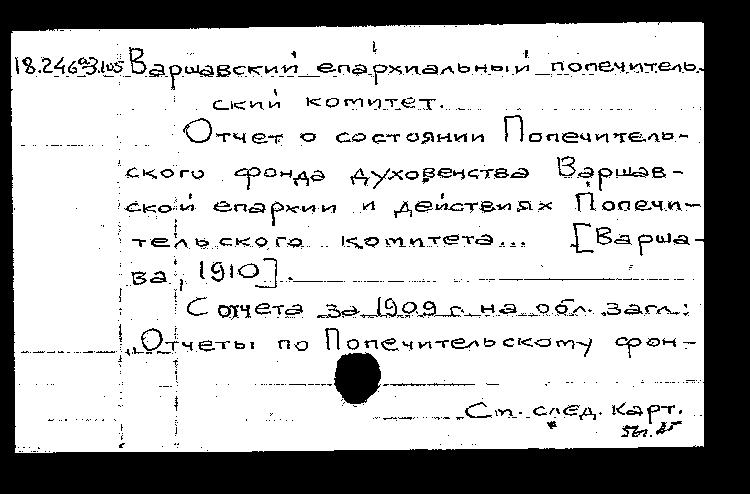 Варшавский епархиальный попечитель-
ский комитет.
Отчет о состоянии Попечитель-
ского фонда духовенства Варшав-
ской епархии и действиях Попечи-
тельского комитета... [Варша-
ва, 1910].
С отчета за 1909 г. на обл. загл.:
„Отчеты по Попечительскому фон-
См. след. карт.